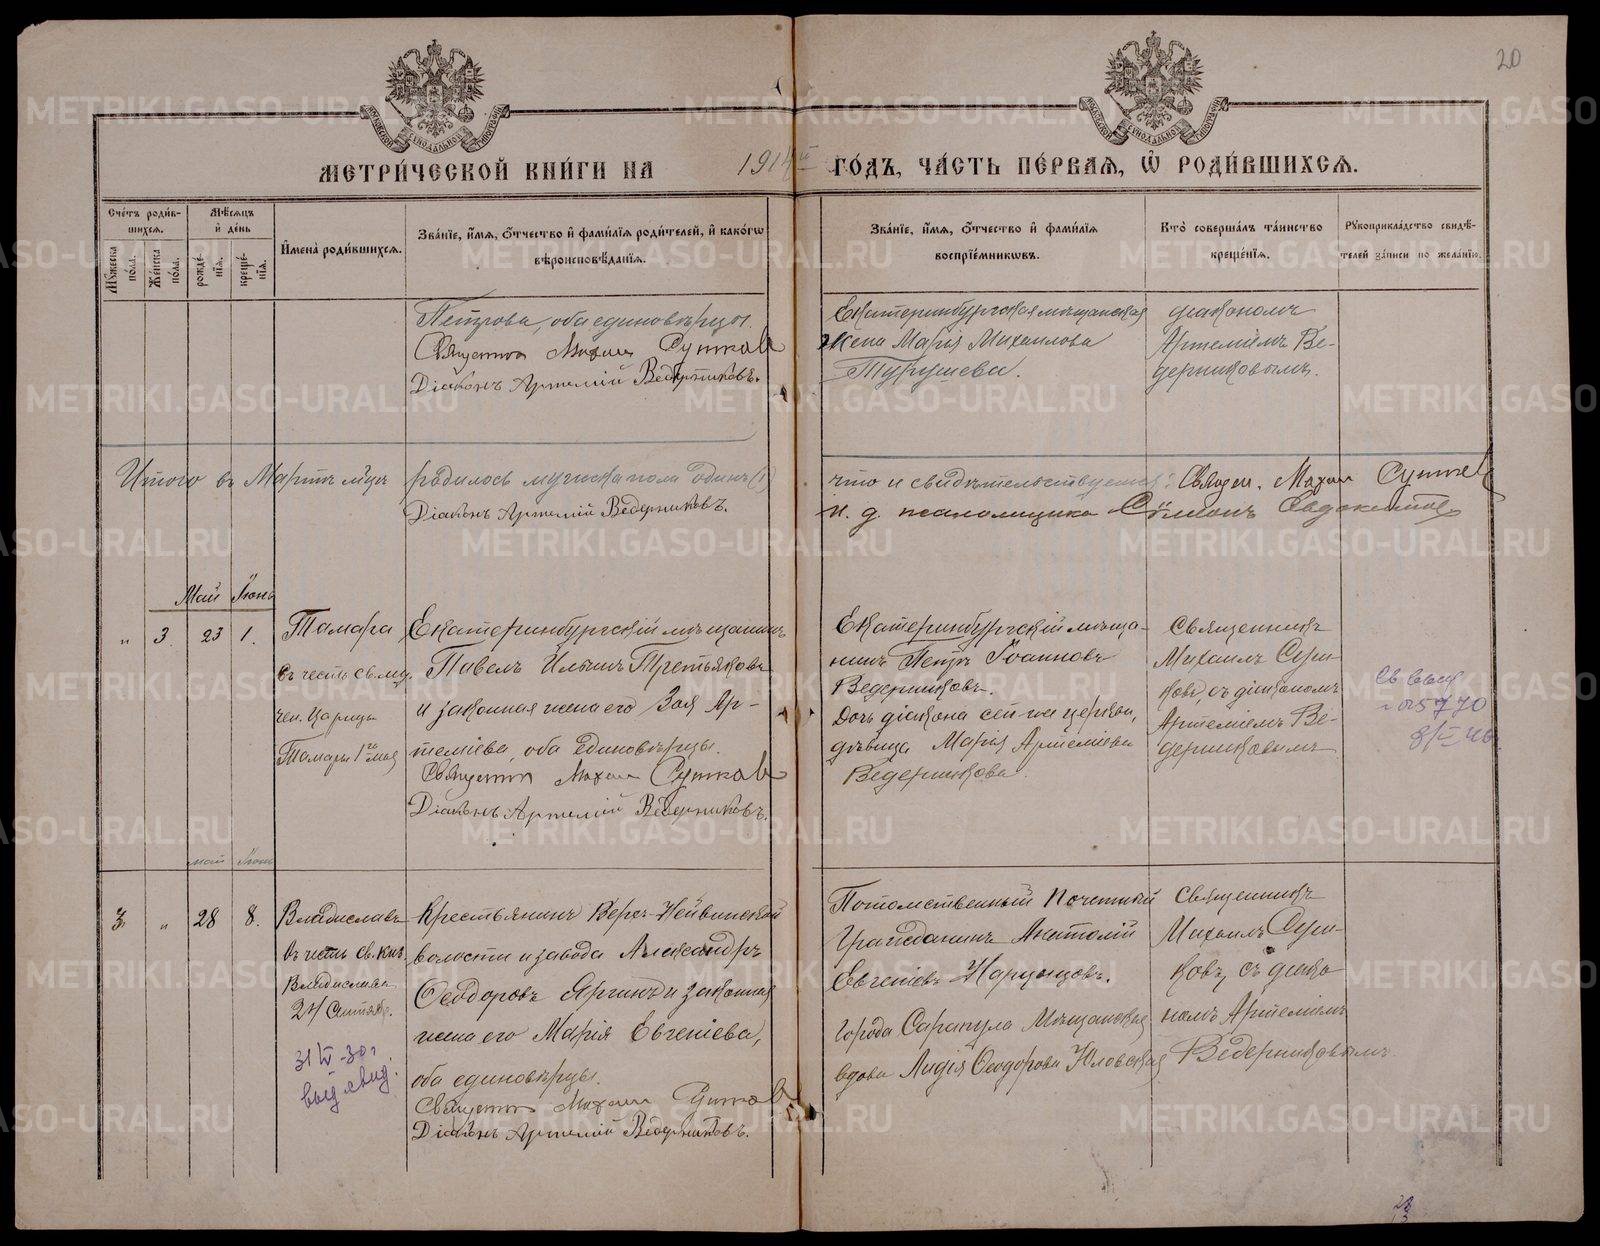 20
МЕТРИ́ЧЕСКОЙ КНИ́ГИ НА 1914й ГО́ДЪ, ЧА́СТЬ ПЕ́РВАЯ, Ѡ҆ РОДИ́ВШИХСЯ.
Сче́тъ роди́в-
шихся.
Мѣ́сяцъ
и҆ де́нь
Мꙋ́жеска по́ла.
Же́нска по́ла.
рожде́-
нїя.
креще́-
нїя.
И҆мена̀ роди́вшихся.
Зва́нїе, и҆́мя, ѻ҆́тчество и҆ фами́лїя роди́телей, и҆ како́гѡ
вѣроисповѣ́данїя.
Зва́нїе, и҆́мя, ѻ҆́тчество и҆ фами́лїя
воспрїе́мникѡвъ.
Кто̀ соверша́лъ та́инство
креще́нїя.
Рꙋкоприкла́дство свидѣ́-
телей за́писи по жела́нїю.
Петрова, оба единовѣрцы.
Священникъ Михаилъ Сушковъ
Діаконъ Артемій Ведерниковъ.
Екатеринбургская мѣщанская
жена Марія Михаилова
діакономъ
Артеміемъ Ве-
дерниковымъ.
Итого въ Мартѣ м-цѣ родилось мужска пола одинъ (1)
Діаконъ Артемій Ведерниковъ.
что и свидѣтельствуемъ: Священ. Михаилъ Сушковъ
и. д. псаломщика Симеонъ Евдокимовъ
Май Іюнь
" 3. 23 1.
Тамара
въ честь св. му-
чен. Царицы
Тамары 1го мая
Екатеринбургскій мѣщанинъ
Павелъ Ильинъ Третьяковъ
и законная жена его Зоя Ар-
теміева, оба единовѣрцы.
Священникъ Михаилъ Сушковъ
Діаконъ Артемій Ведерниковъ.
Екатеринбургскій мѣща-
нинъ Петръ Іоанновъ
Ведерниковъ.
Дочь діакона сей-же церкви,
дѣвица Марія Артеміева
Ведерникова.
Священникъ
Михаилъ Суш-
ковъ, съ діакономъ
Артеміемъ Ве-
дерниковымъ
май Іюнь
3. " 28 8.
Владиславъ
въ честь св. кн.
Владислава
24 Сентября.
31 IV-30г
выд. свид.
Крестьянинъ Верхъ-Нейвинской
волости и завода Александръ
Ѳеодоровъ Яргинъ и законная
жена его Марія Евгеніева,
оба единовѣрцы.
Священникъ Михаилъ Сушковъ
Діаконъ Артемій Ведерниковъ.
Потомственный Почетный
Гражданинъ Анатолій
Евгеніевъ Нарцызовъ.
Города Сарапула Мѣщанская
вдова Лидія Ѳеодорова
Священникъ
Михаилъ Суш-
ковъ, съ діако
номъ Артеміемъ
Ведерниковымъ.
METRIKI.GASO-URAL.RU